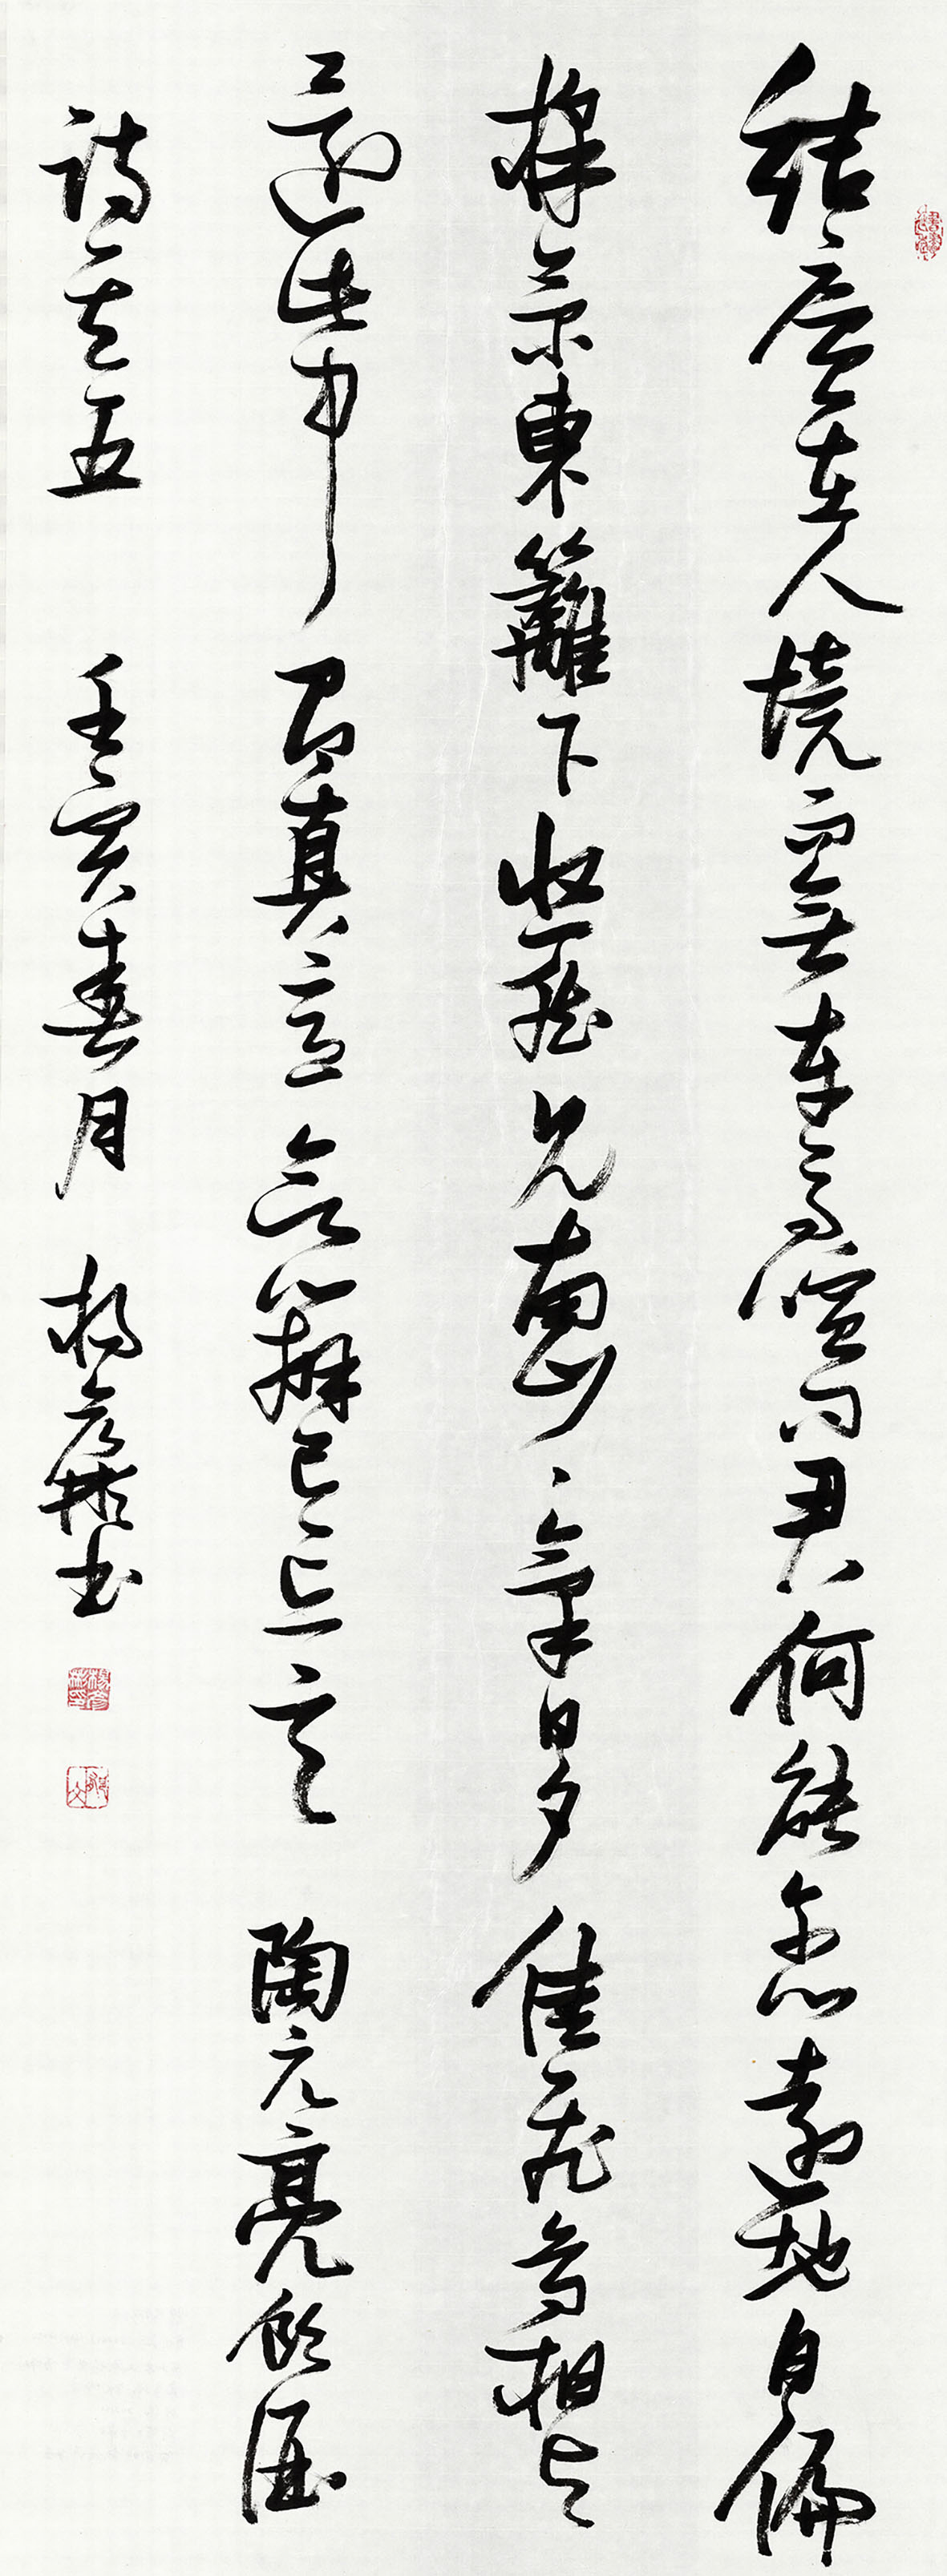 結廬在人境而無車馬喧問君何能尔心遠地自偏
採菊東籬下悠然見南山、氣日夕佳飛鳥相與
還此中有真意欲辨已忘言 陶元亮飲酒
詩其五 壬寅春月 楊彥書